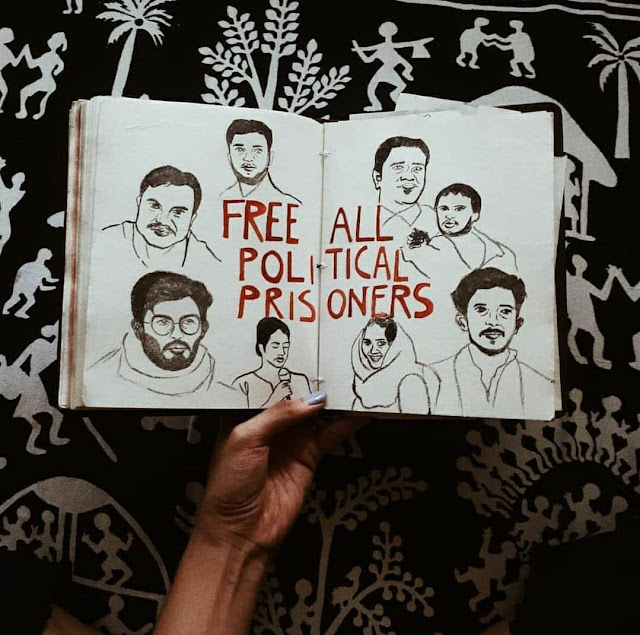 FREE ALL
POLITICAL
PRISONERS